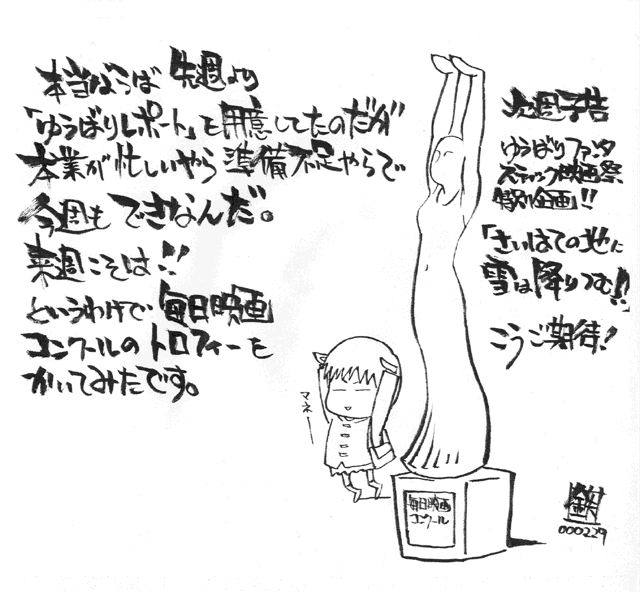 本当ならば 先週より
「ゆうばりレポート」を用意してたのだが
本業が忙しいやら準備不足やらで
今週もできなんだ。
来週こそは!!
というわけで 毎日映画
コンクールのトロフィーを
かいてみたです。
マネー
毎日映画
コンクール
次週予告
ゆうばりファンタ
スティック映画祭
特別企画!!
「さいはての地に
雪は降りつむ!!」
こうご期待!
000229